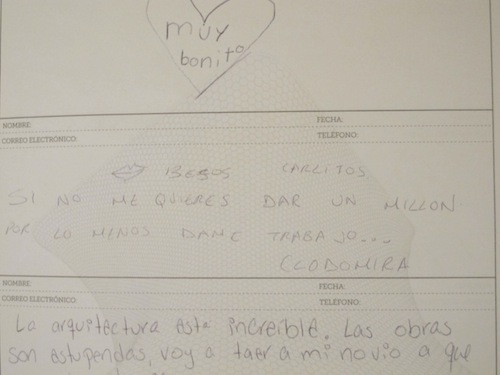 muy
bonito
NOMBRE: FECHA:
CORREO ELECTRÓNICO: TELÉFONO:
BESOS CARLITOS
SI NO ME QUIERES DAR UN MILLON
POR LO MENOS DAME TRABAJO...
CLODOMIRA
NOMBRE: FECHA:
CORREO ELECTRÓNICO: TELÉFONO:
La arquitectura esta increible. Las obras
son estupendas, voy a taer a mi novio a que